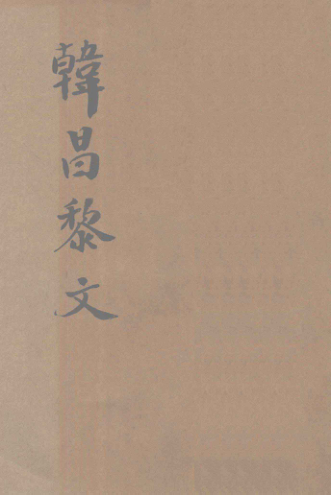 韓昌黎文